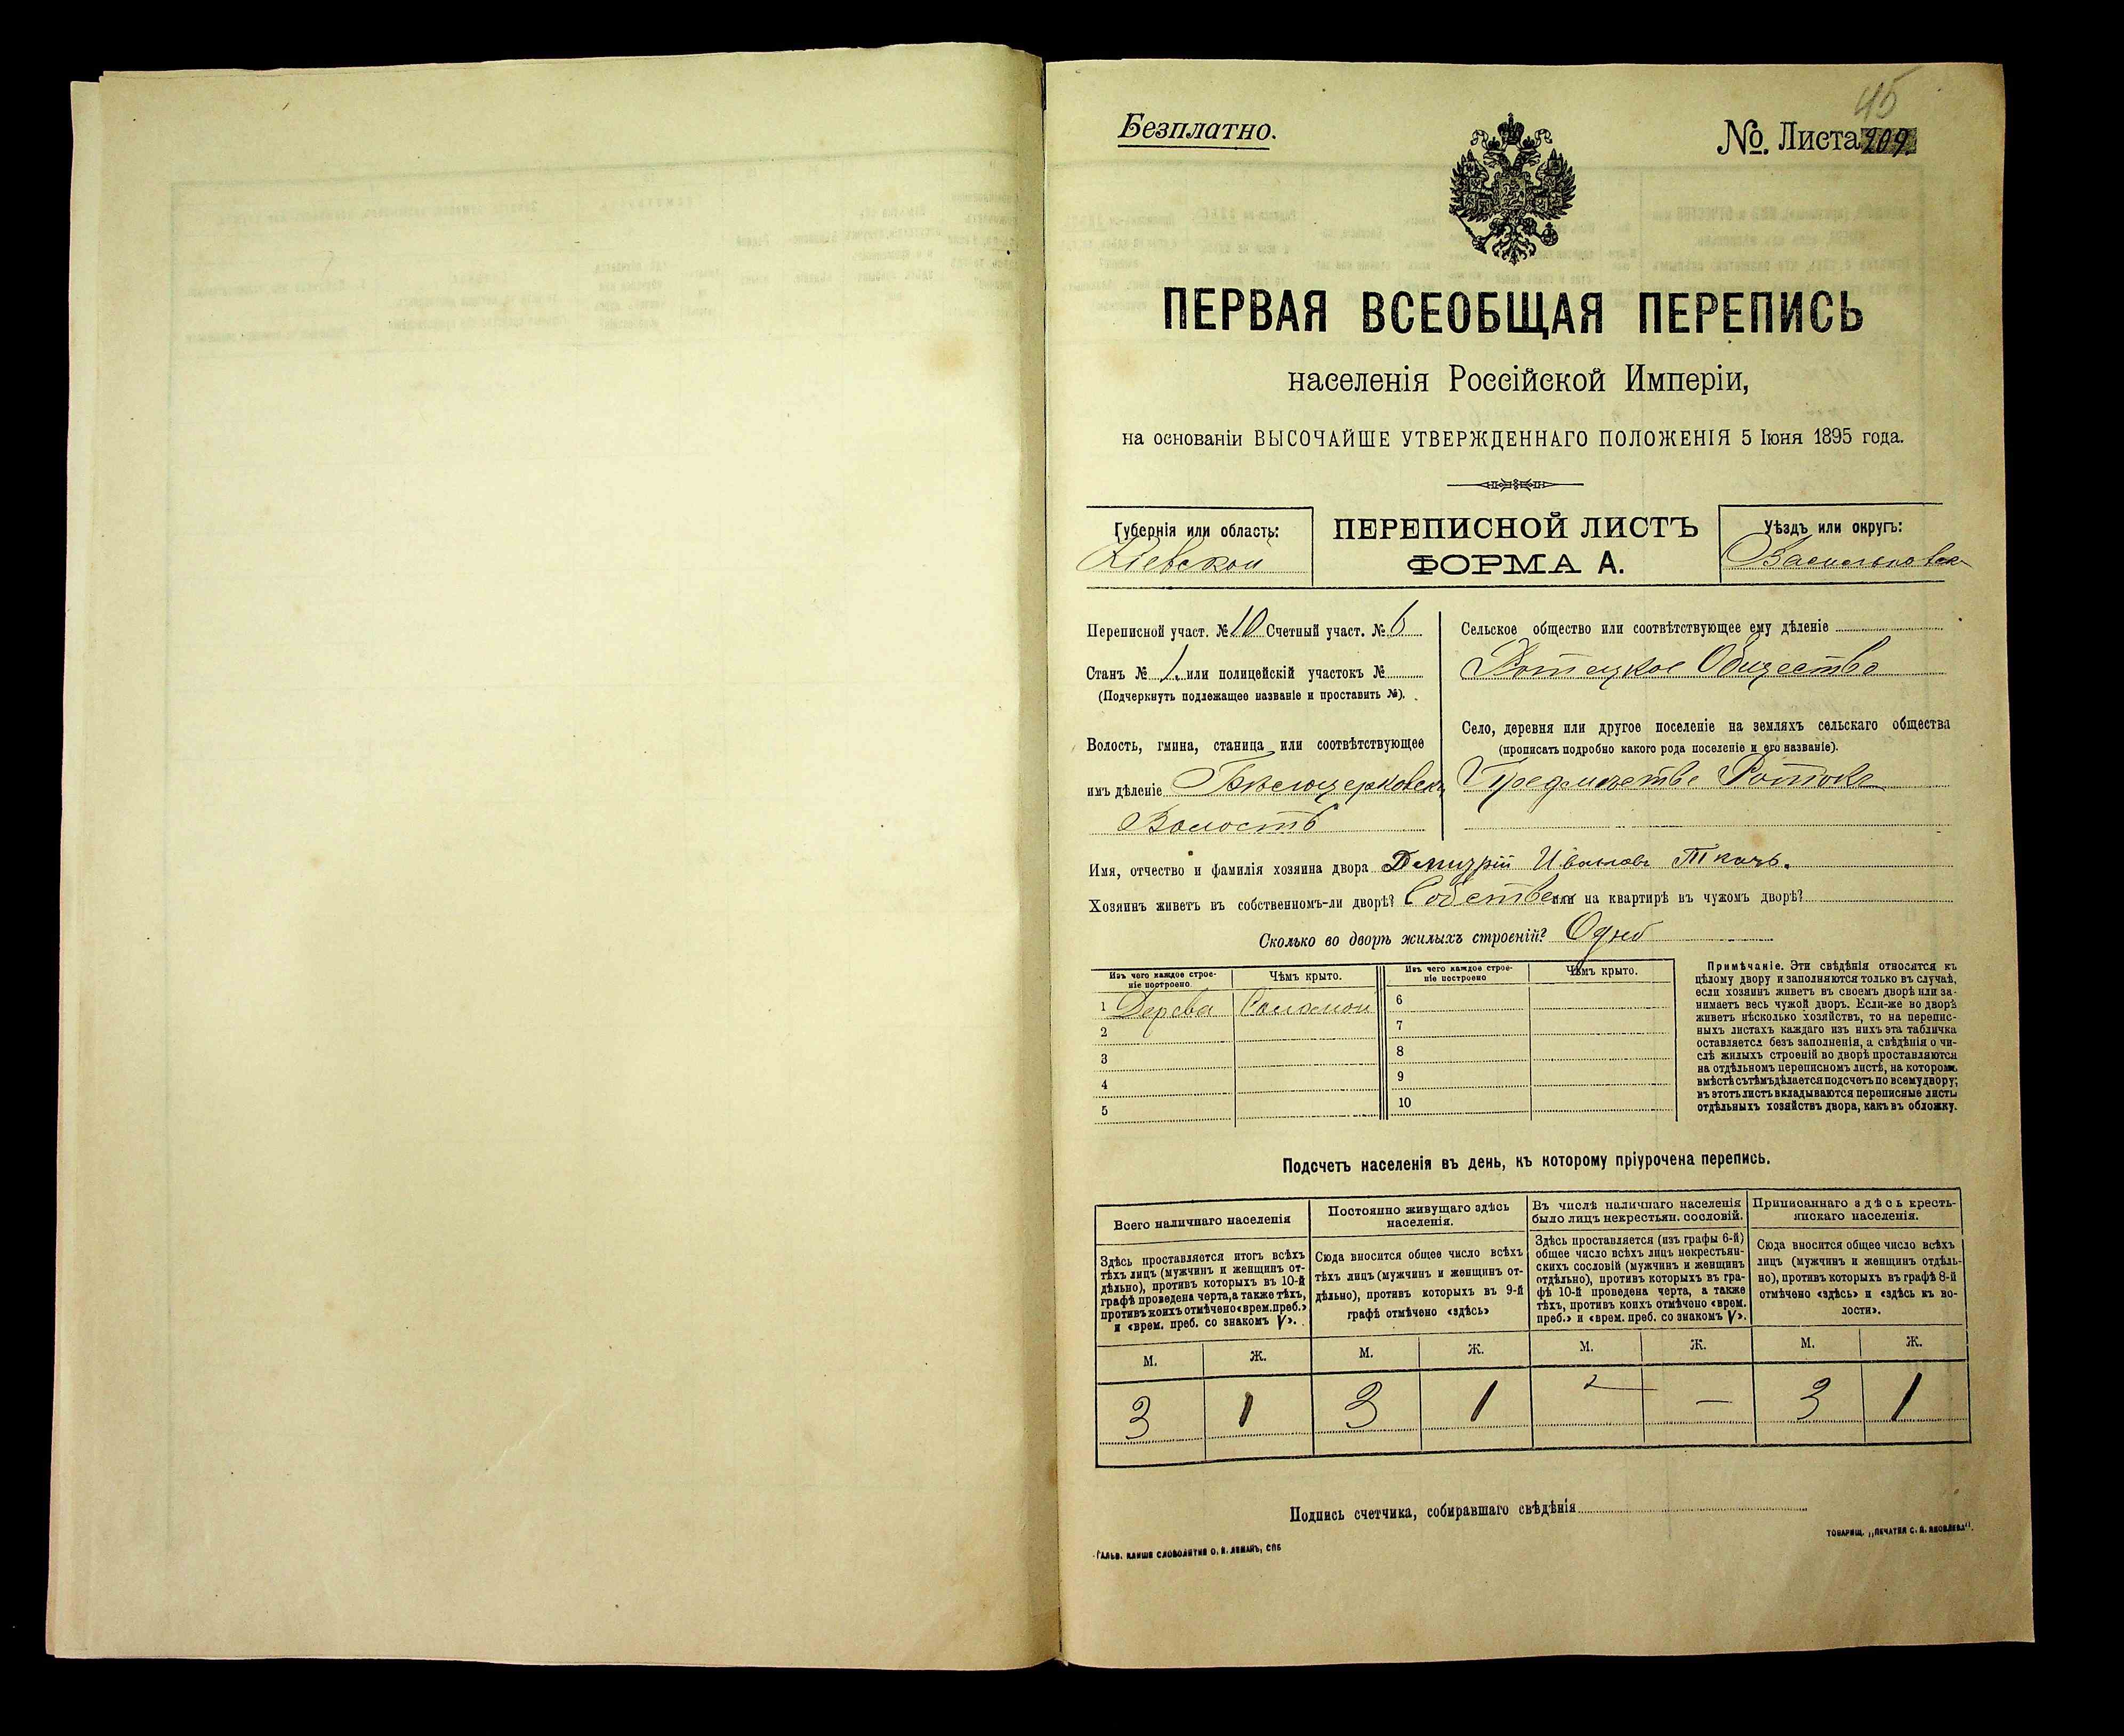 45
Безплатно.
№. Листа 209.
ПЕРВАЯ ВСЕОБЩАЯ ПЕРЕПИСЬ
населенія Россійской Имперіи,
на основаніи ВЫСОЧАЙШЕ УТВЕРЖДЕННАГО ПОЛОЖЕНІЯ 5 Іюня 1895 года.
Губернія или область:
Кіевской
ПЕРЕПИСНОЙ ЛИСТЪ
ФОРМА А.
Уѣздъ или округъ:
Васильковск
Переписной участ. № 10 Счетный участ. № 6
Станъ № 1. или полицейскій участокъ №
(Подчеркнуть подлежащее названіе и проставить №).
Волость, гмина, станица или соотвѣтствующее
имъ дѣленіе Бѣлоцерковск
Волость
Сельское общество или соотвѣтствующее ему дѣленіе
Ротецкое Общество
Село, деревня или другое поселеніе на земляхъ сельскаго общества
(прописать подробно какого рода поселеніе и его названіе).
Предместье Ротокъ
Имя, отчество и фамилія хозяина двора Дмитрій Ивановъ Ткачъ.
Хозяинъ живетъ въ собственномъ-ли дворѣ? Собствен или на квартирѣ въ чужомъ дворѣ?
Сколько во дворѣ жилыхъ строеній? Одно
Изъ чего каждое строе-
ніе построено.
Чѣмъ крыто.
Изъ чего каждое строе-
ніе построено
Чѣмъ крыто.
1 Дерева Соломой 6
2 7
3 8
4 9
5 10
Примѣчаніе. Эти свѣдѣнія относятся къ
цѣлому двору и заполняются только въ случаѣ,
если хозяинъ живетъ въ своемъ дворѣ или за-
нимаетъ весь чужой дворъ. Если-же во дворѣ
живетъ нѣсколько хозяйствъ, то на перепис-
ныхъ листахъ каждаго изъ нихъ эта табличка
оставляется безъ заполненія, а свѣдѣнія о чи-
слѣ жилыхъ строеній во дворѣ проставляются
на отдѣльномъ переписномъ листѣ, на которомъ
вмѣстѣ съ тѣмъ дѣлается подсчетъ по всему двору;
въ этотъ листъ вкладываются переписные листы
отдѣльныхъ хозяйствъ двора, какъ въ обложку.
Подсчетъ населенія въ день, къ которому пріурочена перепись.
Всего наличнаго населенія
Здѣсь проставляется итогъ всѣхъ
тѣхъ лицъ (мужчинъ и женщинъ от-
дѣльно), противъ которыхъ въ 10-й
графѣ проведена черта, а также тѣхъ,
противъ коихъ отмѣчено «врем. преб.»
и «врем. преб. со знакомъ V».
Постоянно живущаго здѣсь
населенія.
Сюда вносится общее число всѣхъ
тѣхъ лицъ (мужчинъ и женщинъ от-
дѣльно), противъ которыхъ въ 9-й
графѣ отмѣчено «здѣсь»
Въ числѣ наличнаго населенія
было лицъ некрестьян. сословій.
Здѣсь проставляется (изъ графы 6-й)
общее число всѣхъ лицъ некрестьян-
скихъ сословій (мужчинъ и женщинъ
отдѣльно), противъ которыхъ въ гра-
фѣ 10-й проведена черта, а также
тѣхъ, противъ коихъ отмѣчено «врем.
преб.» и «врем. преб. со знакомъ V».
Приписаннаго здѣсь кресть-
янскаго населенія.
Сюда вносится общее число всѣхъ
лицъ (мужчинъ и женщинъ отдѣль-
но), противъ которыхъ въ графѣ 8-й
отмѣчено «здѣсь» и «здѣсь къ во-
лости».
М. Ж. М. Ж. М. Ж. М. Ж.
3 1 3 1 — — 3 1
Подпись счетчика, собиравшаго свѣдѣнія
ГАЛЬВ. КЛИШЕ СЛОВОЛИТНИ О. И. ЛЕМАНЪ, СПБ
ТОВАРИЩ. „ПЕЧАТНЯ С. П. ЯКОВЛЕВА".